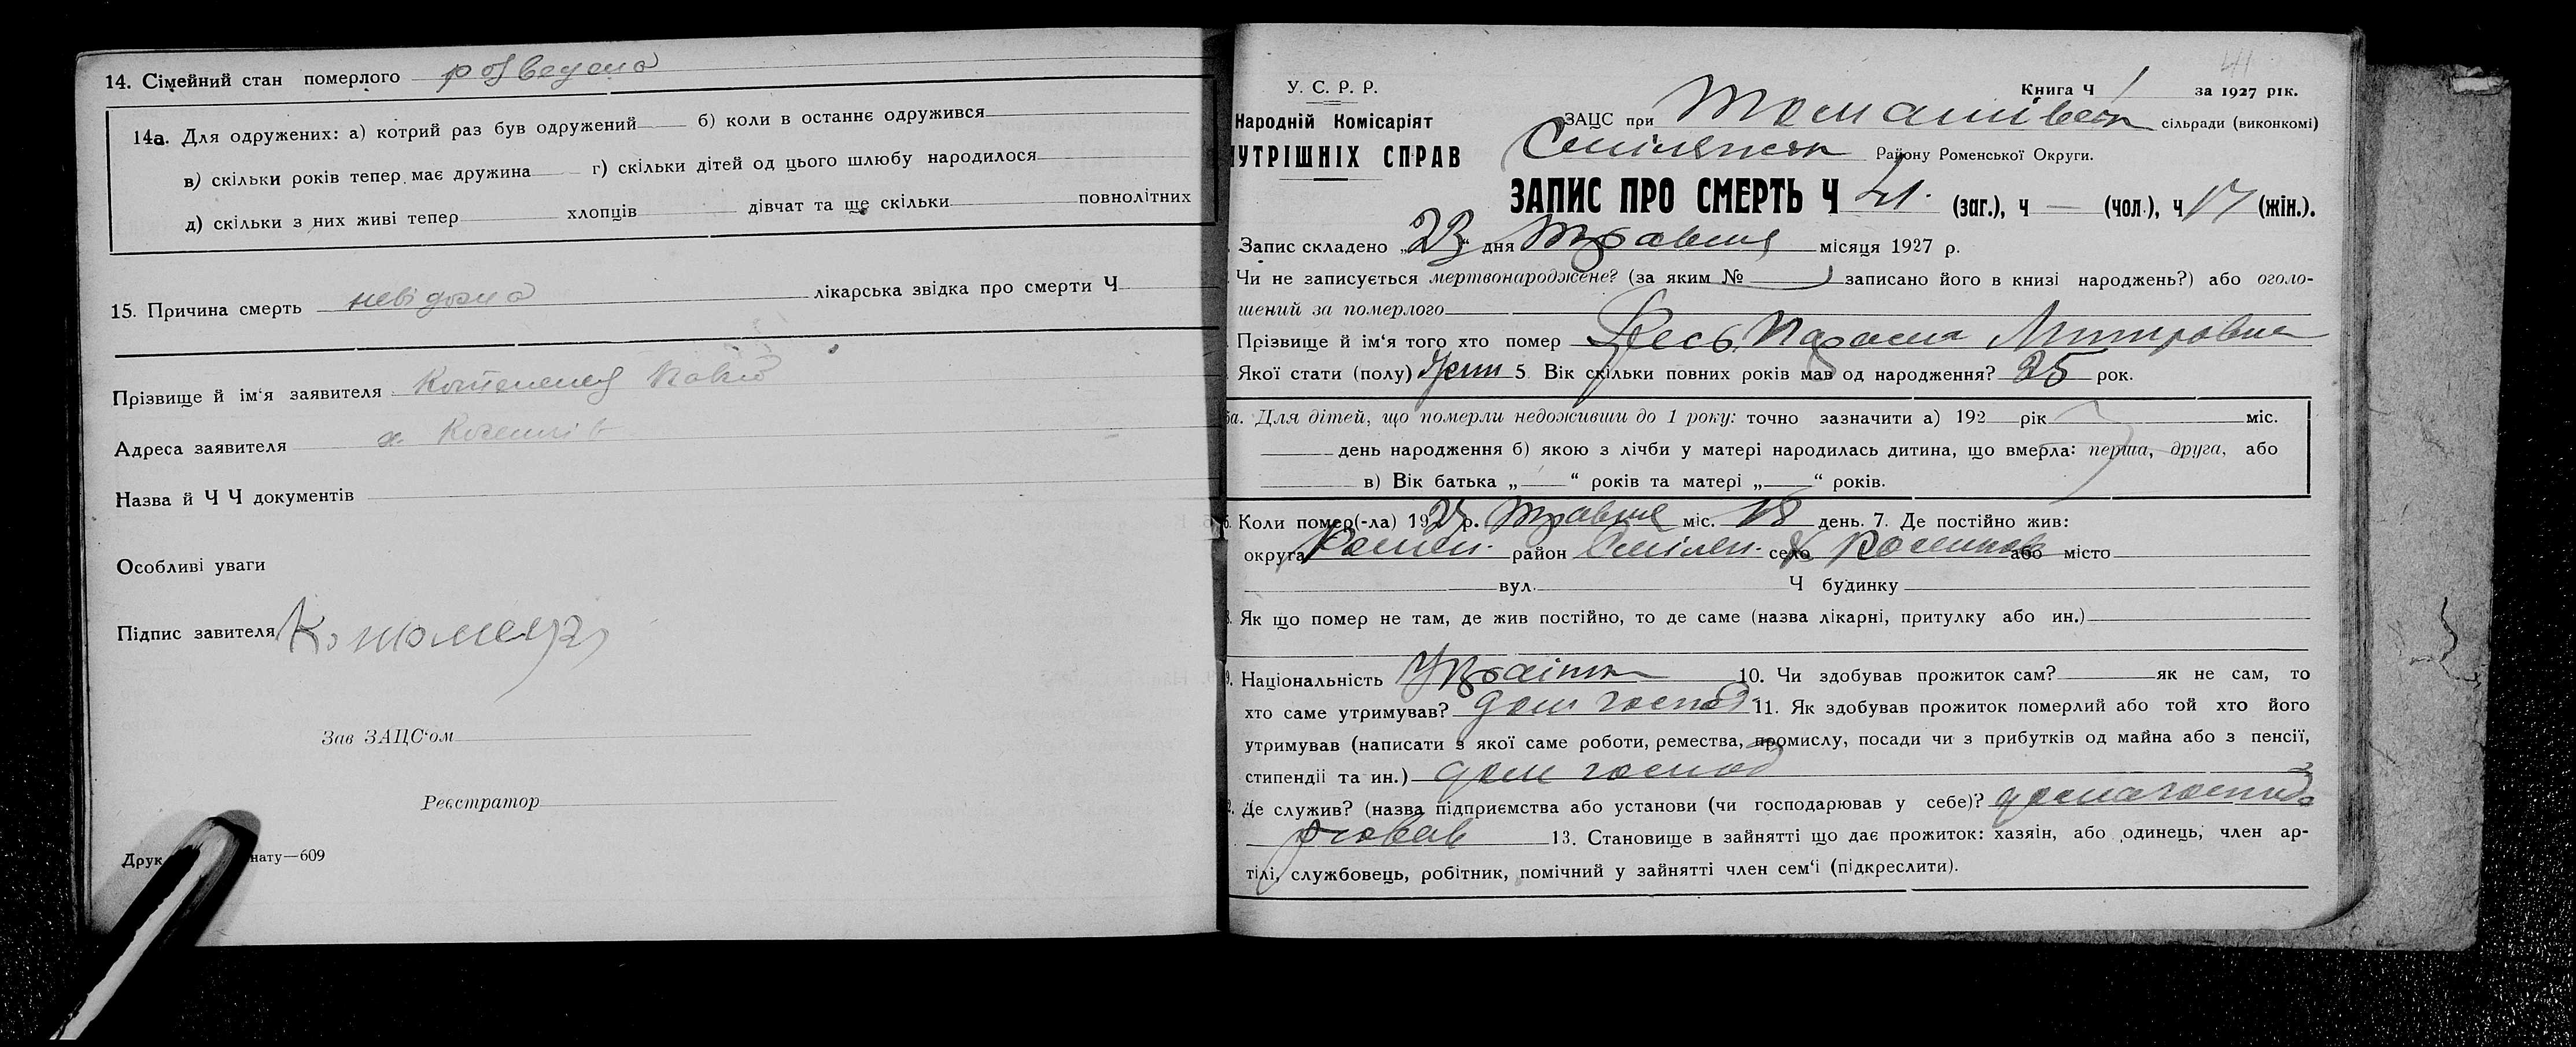 14. Сімейний стан померлого розведена
14а. Для одружених: а) котрий раз був одружений б) коли в останнє одружився
в) скільки років тепер має дружина г) скільки дітей од цього шлюбу народилося
д) скільки з них живі тепер хлопців дівчат та ще скільки повнолітних
15. Причина смерть невідома лікарська звідка про смерти Ч
Прізвище й ім'я заявителя Павло
Адреса заявителя х.
Назва й Ч Ч документів
Особливі уваги
Підпис завителя
Зав ЗАЦС'ом
Реєстратор
Друк нату—609
41
У. С. Р. Р.
Книга Ч 1 за 1927 рік.
Народній Комісаріят
ЗАЦС при Томашівськ сільради (виконкомі)
УТРІШНІХ СПРАВ
Смілянськ Району Роменської Округи.
ЗАПИС ПРО СМЕРТЬ Ч 41. (заг.), ч — (чол.), ч 17 (жін.).
Запис складено „23" дня Травня місяця 1927 р.
Чи не записується мертвонароджене? (за яким № записано його в книзі народжень?) або оголо-
шений за померлого
Прізвище й ім'я того хто помер Параска Митровна
Якої стати (полу) жін 5. Вік скільки повних років мав од народження? 25 рок.
5а. Для дітей, що померли недоживши до 1 року: точно зазначити а) 192 рік міс.
день народження б) якою з лічби у матері народилась дитина, що вмерла: перша, друга, або
в) Вік батька „—" років та матері „—" років.
6. Коли помер(-ла) 1927 р. Травня міс. 18 день. 7. Де постійно жив:
округа Ромен. район Смілян. село х або місто
вул. Ч будинку
8. Як що помер не там, де жив постійно, то де саме (назва лікарні, притулку або ин.)
9. Національність Українк 10. Чи здобував прожиток сам? як не сам, то
хто саме утримував? дом господ 11. Як здобував прожиток померлий або той хто його
утримував (написати з якої саме роботи, ремества, промислу, посади чи з прибутків од майна або з пенсії,
стипендії та ин.) дом господ
2. Де служив? (назва підприємства або установи (чи господарював у себе)? домагоспода
рював 13. Становище в зайнятті що дає прожиток: хазяїн, або одинець, член ар-
тілі, службовець, робітник, помічний у зайнятті член сем'ї (підкреслити).